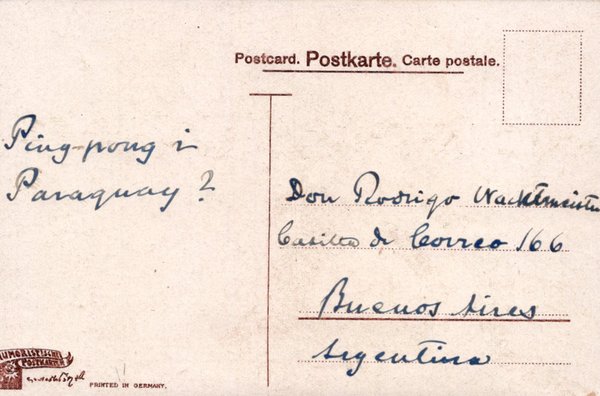 Postcard. Postkarte. Carte postale.
Ping-pong i
Paraguay?
Don Rodrigo Nachtmeister
Casilla de Correo 166
Buenos Aires
Argentina
HUMORISTISCHE
POSTKARTE
PRINTED IN GERMANY.